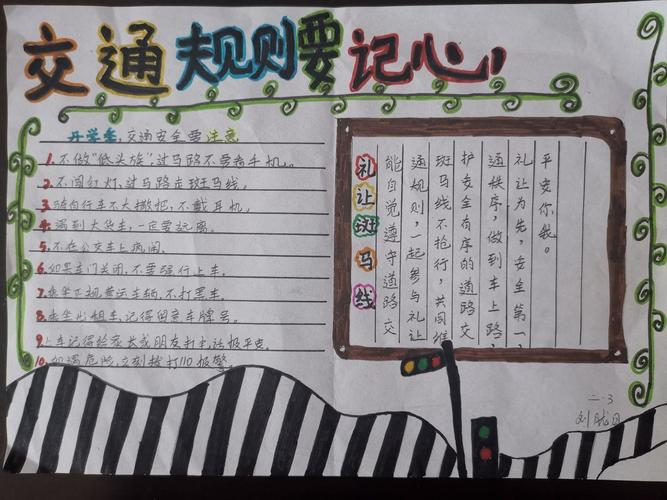 交通规则要记心!
开学季,交通安全要注意
1.不做"低头族",过马路不要看手机。
2.不闯红灯,过马路走斑马线。
3.骑自行车不大撒把,不戴耳机。
4.遇到大货车,一定要远离。
5.不在公交车上疯闹。
6.如果车门关闭,不要强行上车。
7.乘坐正规营运车辆,不打黑车。
8.乘坐出租车,记得留意车牌号。
9.上车记得给家长或朋友打电话报平安。
10.如遇危险,立刻拨打110报警
礼让斑马线
能自觉遵守道路交
通规则,一起参与礼让
斑马线不抢行,共同维
护安全有序的道路交
通秩序,做到车上路,
礼让为先,安全第一,
平安你我。
二.3
刘